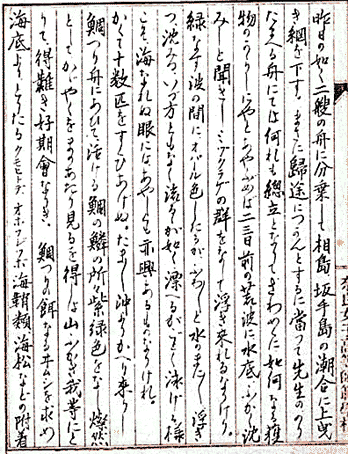 昨日の如く二艘の舟に分乗して相島坂手島の潮合に上曳
き網を下す。また歸途につかんとするに当つて先生のの
たまへる舟にては何れも總立となりてざわめくに如何なる獲
物のありしにやとあやぶめば二三日前の荒波に水底ふかく沈
みしと聞きしミヅクラゲの群をなして浮き来れるなりけり。
緑なす波の間にオパル色したるがふわふわと水のまにまに浮き
つ沈みつ、いづ方ともなく流るゝが如く漂へるがごとく泳げる様
こそ海なれぬ眼にはあやしくも亦興あるものなりけれ
かくて十数匹をすくひあげぬ。たまたま沖よりかへり来りし
鯛つり舟にあひて活ける鯛の鱗の所々紫緑色をなし燦然
としてかゞやくをまのあたり見るを得しは山ふかき我等にと
りて得難き好期會なりき、鯛つりの餌なるエムシを求め
海底よりとりたるクモヒトデオホブンブク海朝顔海松などの附着